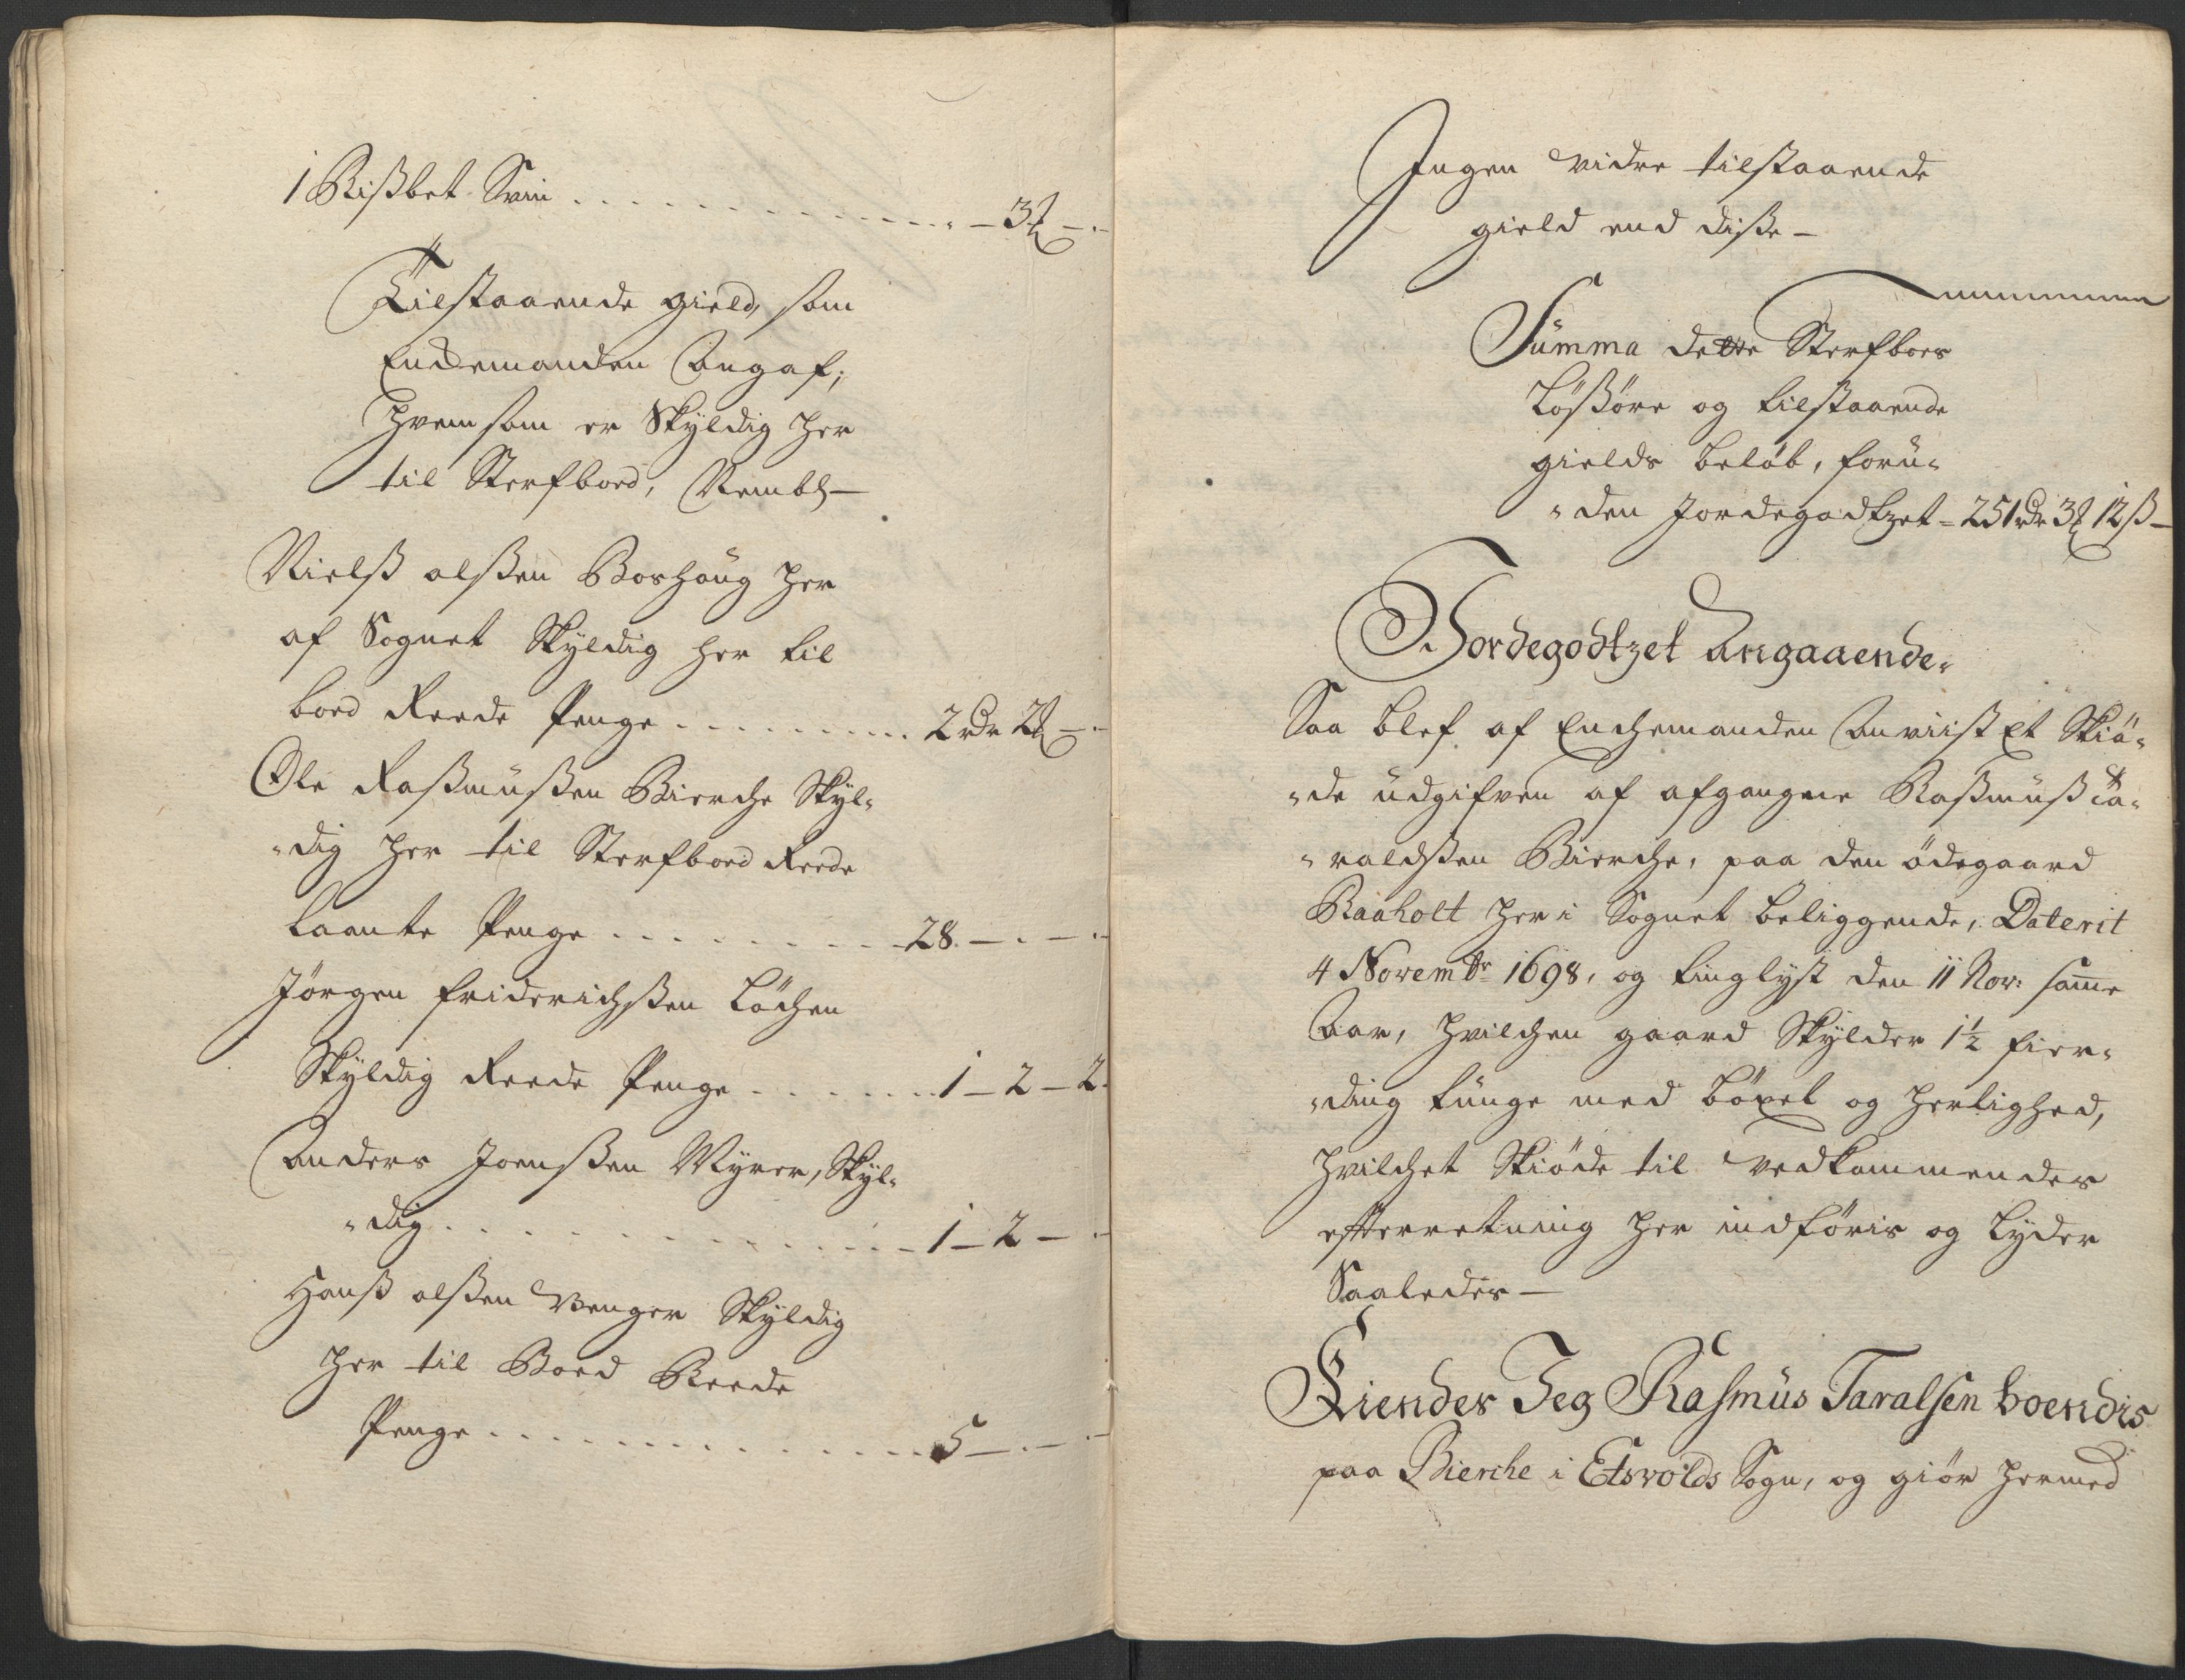 1 Bißbet Svin . . . . . . . . . . . . . . – 3 ℔ – . –
Tilstaaende gield, som
Enchemanden Angaf,
hvem som er Skyldig her
til Sterfboed, Nembl: –
Nielß olßen Boehaug her
af Sognet Skyldig her til
boed Reede Penge . . . . . . . . . 2 rdr 2 ℔ – . –
Ole Raßmüßen Bierche Skyl-
-dig her til Sterfboed Reede
laante Penge . . . . . . . . . 28. – . – . –
Jørgen friderichßen Løchen
Skyldig Reede Penge . . . . . . . 1 – 2 – 2.
Anders Joenßen Myrer, Skyl-
-dig . . . . . . . . . . . . . . 1 – 2 – . –
Hanß olßen Wenger Skyldig
her til Boed Reede
Penge . . . . . . . . . . . . . . . 5 – . – . –
Ingen vidre tilstaaende
gield end diße –
Summa dette Sterfboes
Lößöre og tilstaaende
gields beløb, foru-
-den Jordegodtzet – 251 rdr 3 ℔ 12 ß –
Jordegodtzet Angaaende.
Saa blef af Enchemanden Anviist Et Skiö-
-de udgifven af afgangne Raßmuß Ta-
-raldßen Bierche, paa den ödegaard
Raaholt her i Sognet beliggende, Daterit
4 Novembr 1698, og tinglyst den 11 Nov: samme
Aar, hvilchen gaard Skylder 1½ fier-
-ding tunge med böxel og herlighed,
hvilchet Skiöde til vedkommendes
efterretning her indföris og lyder
Saaledes –
Kiendes Jeg Rasmus Taralsen boendis
paa Bierche i Etsvolds Sogn, og giör hermed